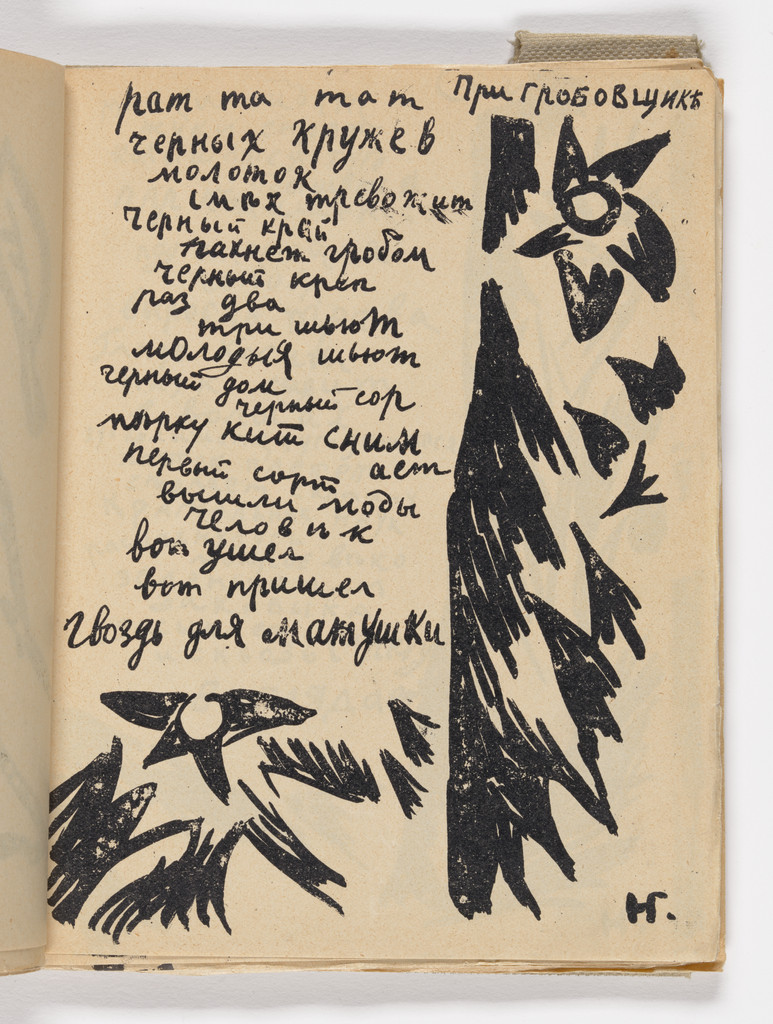 При гробовщикѣ
рат та тат
черных кружев
молоток
смѣх тревожит
черный край
пахнет гробом
черный креп
раз два
три шьют
молодыя шьют
черный дом
черный сор
кит сним
ает
первый сорт
вышли моды
человѣк
вот ушел
вот пришел
гвоздь для матушки
НГ.